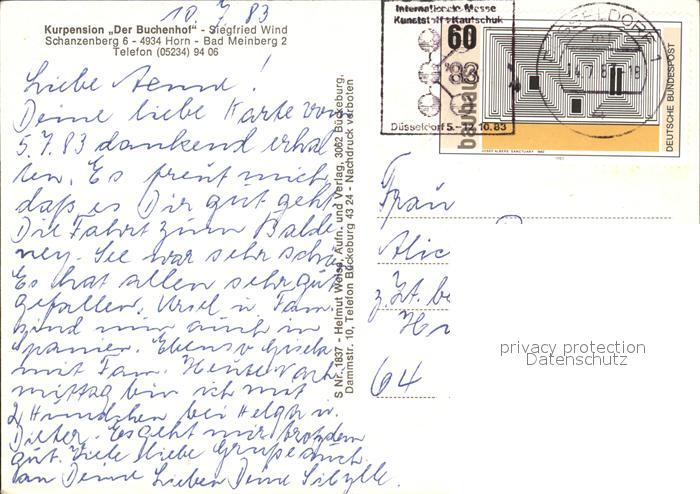 10.7.83
Kurpension „Der Buchenhof" - Siegfried Wind
Schanzenberg 6 - 4934 Horn - Bad Meinberg 2
Telefon (05234) 94 06
Liebe Aenne!
Deine liebe Karte vom
5.7.83 dankend erhal
ten. Es freut mich
daß es Dir gut geht
Die Fahrt zum Balde
ney. See war sehr schön
Es hat allen sehr gut
gefallen. Ursel u Fam.
sind nun auch in
Spanien. Ebenso Gisela
mit Fam. Heute Nach
mittag bin ich mit
2 Hündchen bei Helga u.
Dieter. Es geht mir trotzdem
gut. Viele liebe Grüße auch
an Deine Lieben Deine Sibylle.
S Nr. 1837 - Helmut Weiss, Aufn. und Verlag, 3062 Bückeburg,
Dammstr. 10, Telefon Bückeburg 43 24 - Nachdruck verboten
Internationale Messe
Kunststoff+Kautschuk
'83
Düsseldorf 5.-12.10.83
60
bauhaus
DÜSSELDORF 1
DEUTSCHE BUNDESPOST
JOSEF ALBERS SANCTUARY 1942
1983
Frau
Alic
z.Zt. be
64
privacy protection
Datenschutz